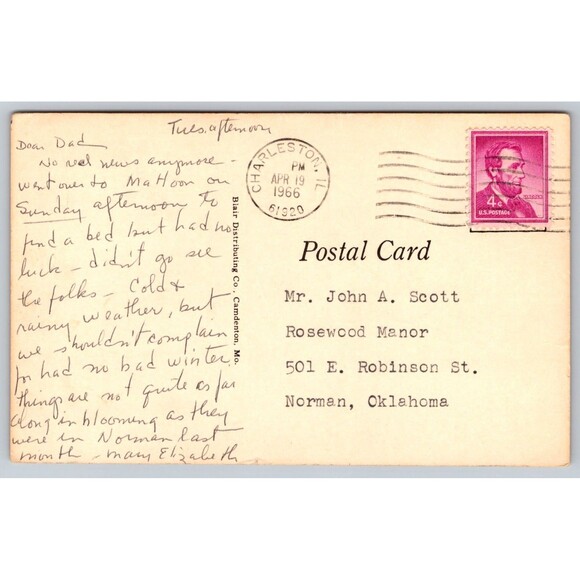 Tues. afternoon
Dear Dad
No real news anymore -
went over to Mattoon on
Sunday afternoon to
find a bed but had no
luck - didn't go see
the folks - Cold &
rainy weather, but
we shouldn't complain
for had no bad winter.
Things are not quite as far
along in blooming as they
were in Norman last
month - Mary Elizabeth
Blair Distributing Co., Camdenton, Mo.
CHARLESTON, IL
PM
APR 19
1966
61920
4¢
U.S. POSTAGE
Postal Card
Mr. John A. Scott
Rosewood Manor
501 E. Robinson St.
Norman, Oklahoma